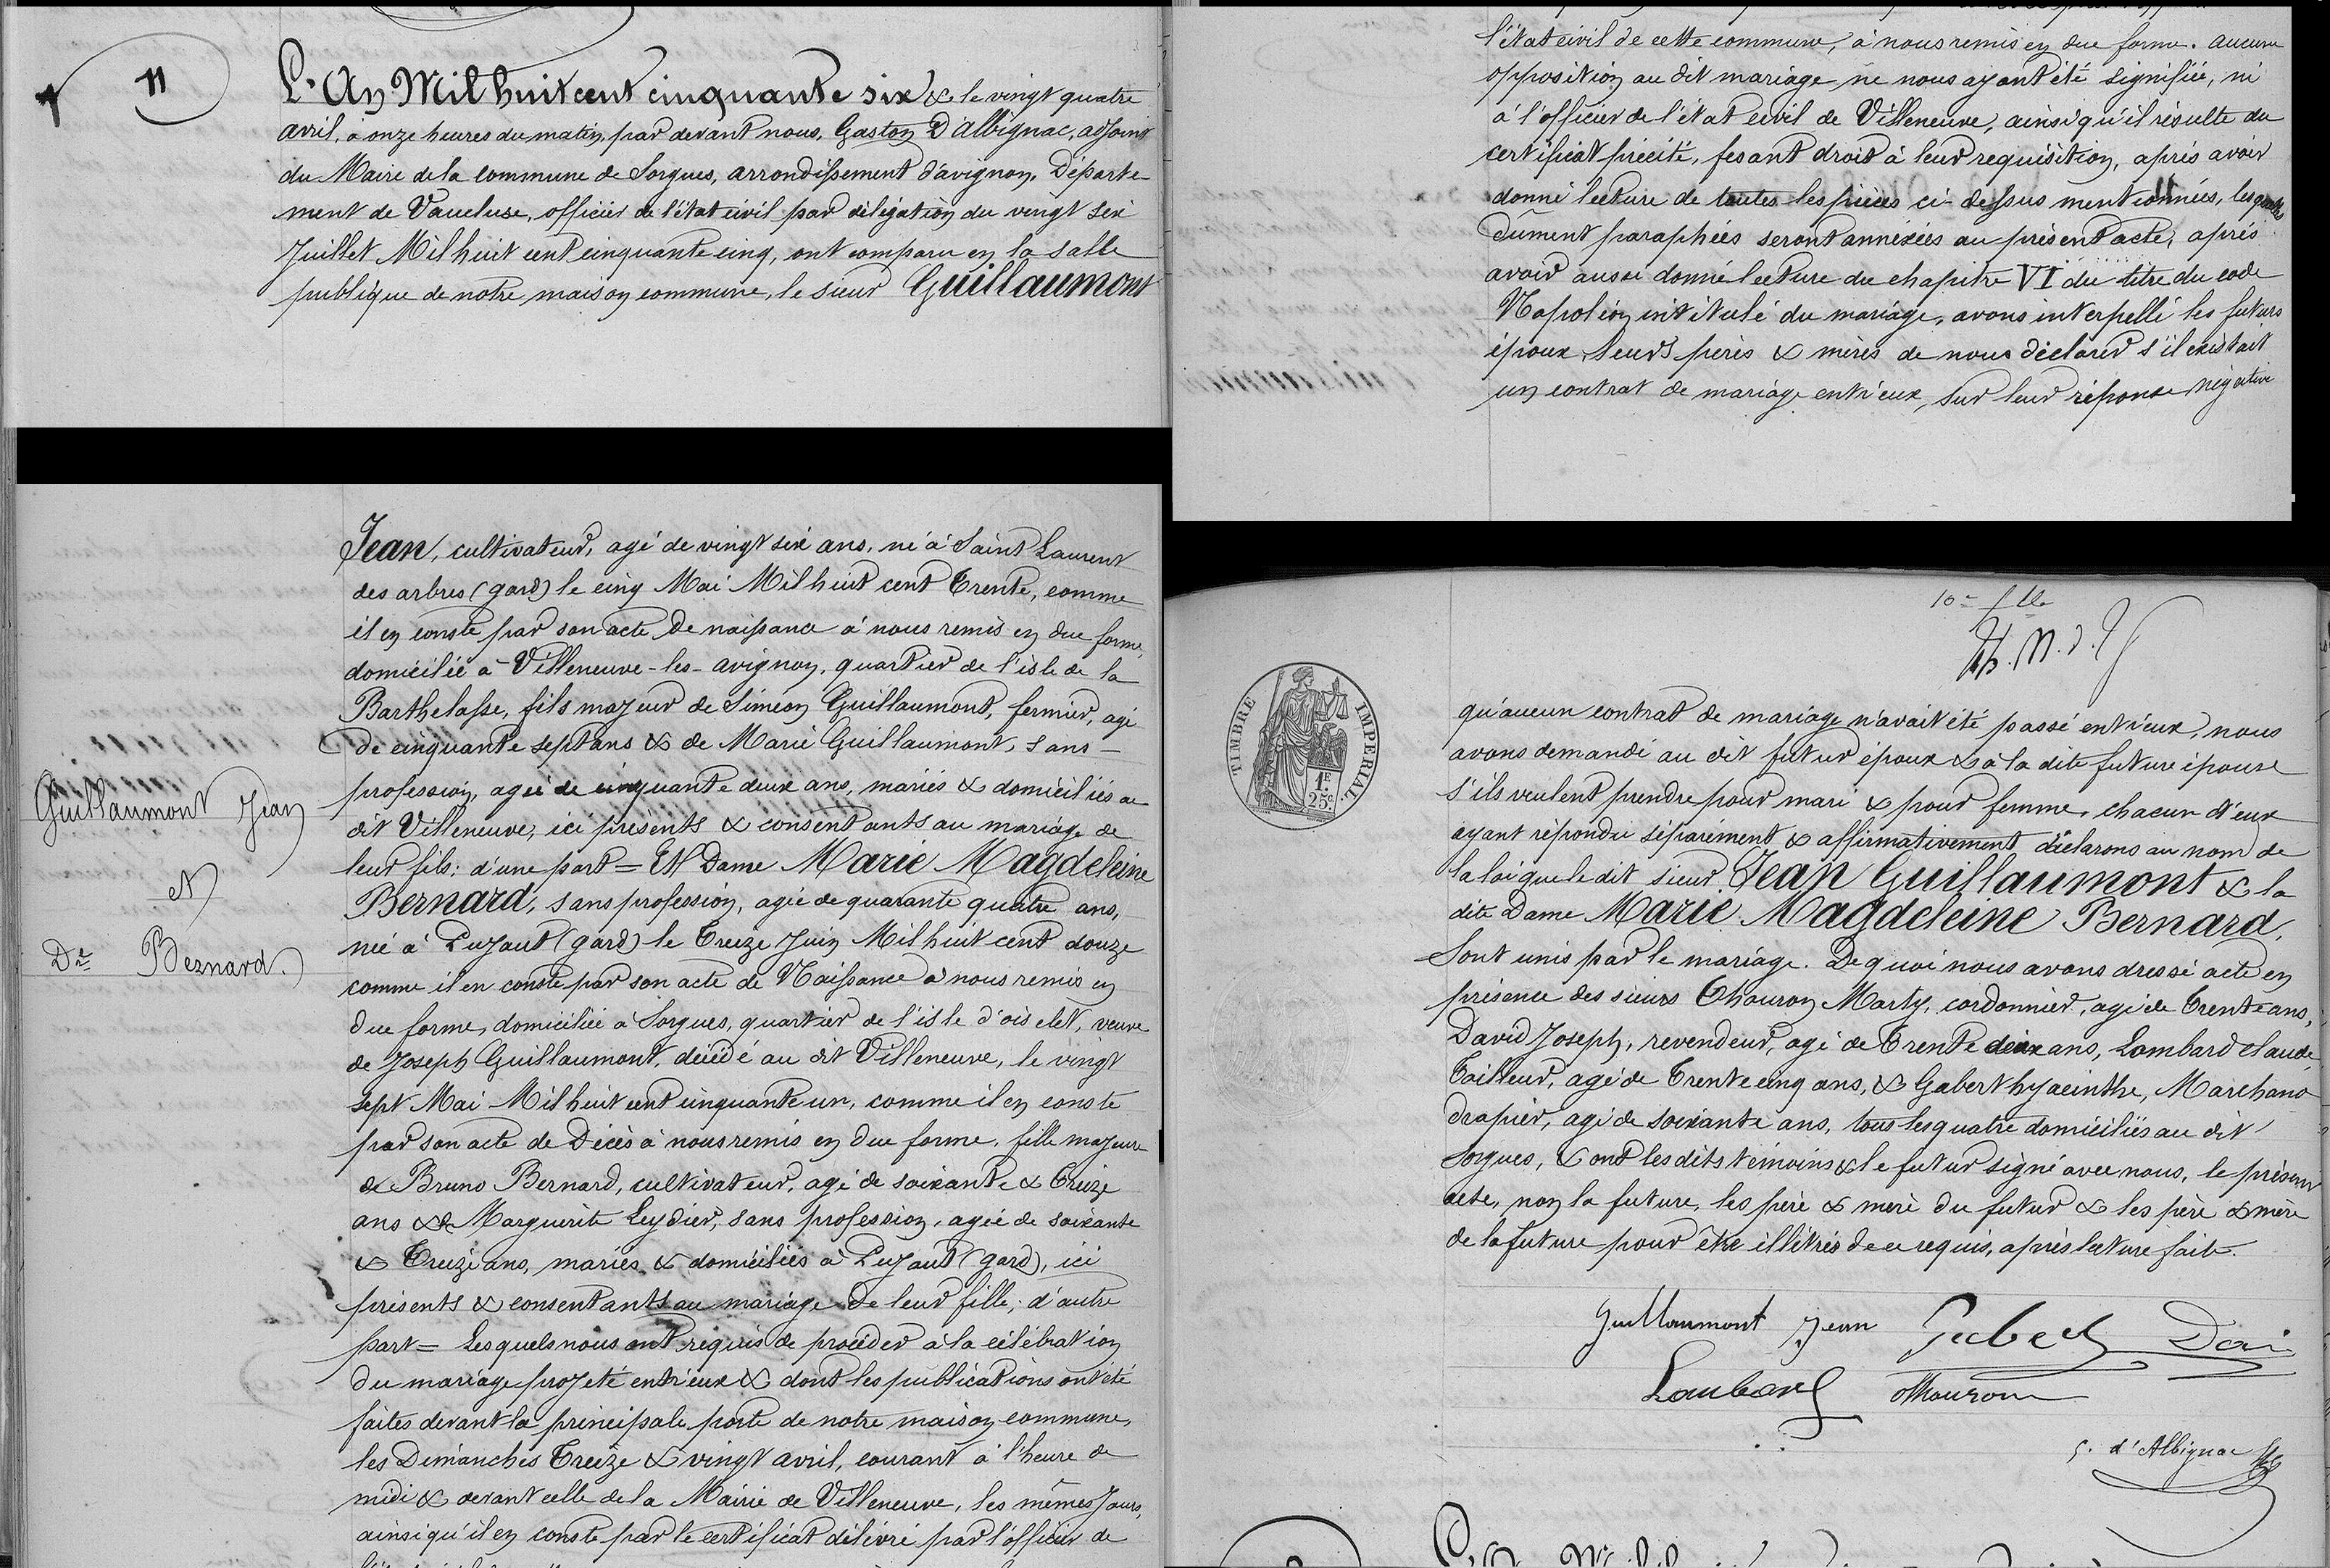 11
L'An Mil huit cent cinquante six & le vingt quatre
avril, à onze heures du matin, par devant nous, Gaston D'Albignac, adjoint
du Maire de la commune de Sorgues, arrondissement d'avignon, Départe-
ment de Vaucluse, officier de l'état civil par délégation du vingt six
Juillet Mil huit cent cinquante cinq, ont comparu en la salle
publique de notre maison commune, le sieur Guillaumont
Guillaumont Jean
et
De Bernard.
Jean, cultivateur, agé de vingt six ans, né à Saint Laurent
des arbres (gard) le cinq Mai Mil huit cent Trente, comme
il en conste par son acte de naissance à nous remis en due forme,
domicilié à Villeneuve-les-avignon, quartier de l'isle de la
Barthelasse, fils majeur de Siméon Guillaumont, fermier, agé
de cinquante sept ans & de Marie Guillaumont, sans-
profession, agée de cinquante deux ans, mariés & domiciliés au
dit Villeneuve, ici présents & consentants au mariage de
leur fils; d'une part = Et Dame Marie Magdeleine
Bernard, sans profession, agée de quarante quatre ans,
née à Pujaut (gard) le Treize Juin Mil huit cent douze
comme il en conste par son acte de Naissance à nous remis en
due forme, domiciliée à Sorgues, quartier de l'isle d'oiselet, veuve
de Joseph Guillaumont, décédé au dit Villeneuve, le vingt
sept Mai Mil huit cent cinquante un, comme il en conste
par son acte de Décès à nous remis en due forme, fille majeure
de Bruno Bernard, cultivateur, agé de soixante & Treize
ans & de Marguerite Leydier, sans profession, agée de soixante
& Treize ans, mariés & domiciliés à Pujaut (gard), ici
présents & consentants au mariage de leur fille; d'autre
part = Lesquels nous ont requis de procéder à la célébration
du mariage projeté entr'eux & dont les publications ont été
faites devant la principale porte de notre maison commune,
les Dimanches Treize & vingt avril, courant à l'heure de
midi & devant celle de la Mairie de Villeneuve, les mêmes Jours,
ainsi qu'il en conste par le certificat délivré par l'officier de
l'état civil de cette commune, à nous remis en due forme. aucune
opposition au dit mariage ne nous ayant été signifiée, ni
à l'officier de l'état civil de Villeneuve, ainsi qu'il résulte du
certificat précité, fesant droit à leur requisition, après avoir
donné lecture de toutes les pièces ci-dessus mentionnées, lesquelles
dûment paraphées seront annexées au présent acte, après
avoir aussi donné lecture du chapitre VI du titre du code
Napoléon intitulé du mariage, avons interpellé les futurs
époux, leurs pères & mères de nous déclarer s'il existait
un contrat de mariage entr'eux, sur leur réponse négative
TIMBRE IMPERIAL.
1F.
25c.
qu'aucun contrat de mariage n'avait été passé entr'eux, nous
avons demandé au dit futur époux & à la dite future épouse
s'ils veulent prendre pour mari & pour femme, chacun d'eux
ayant répondu séparément & affirmativement, déclarons au nom de
la loi que le dit sieur Jean Guillaumont & la
dite Dame Marie Magdeleine Bernard,
Sont unis par le mariage. De quoi nous avons dressé acte en
présence des sieurs Thouron Marty, cordonnier, agé de Trente ans,
David Joseph, revendeur, agé de Trente deux ans, Lombard Claude
Tailleur, agé de Trente cinq ans, & Gabert hyacinthe, Marchand
drapier, agé de soixante ans, tous les quatre domiciliés au dit
Sorgues, & ont les dits témoins & le futur signé avec nous, le présent
acte, non la future, les père & mère du futur & les père & mère
de la future pour être illétrés de ce requis, après lecture faite.
Guillaumont Jean
Lombard Thouron
G. d'Albignac